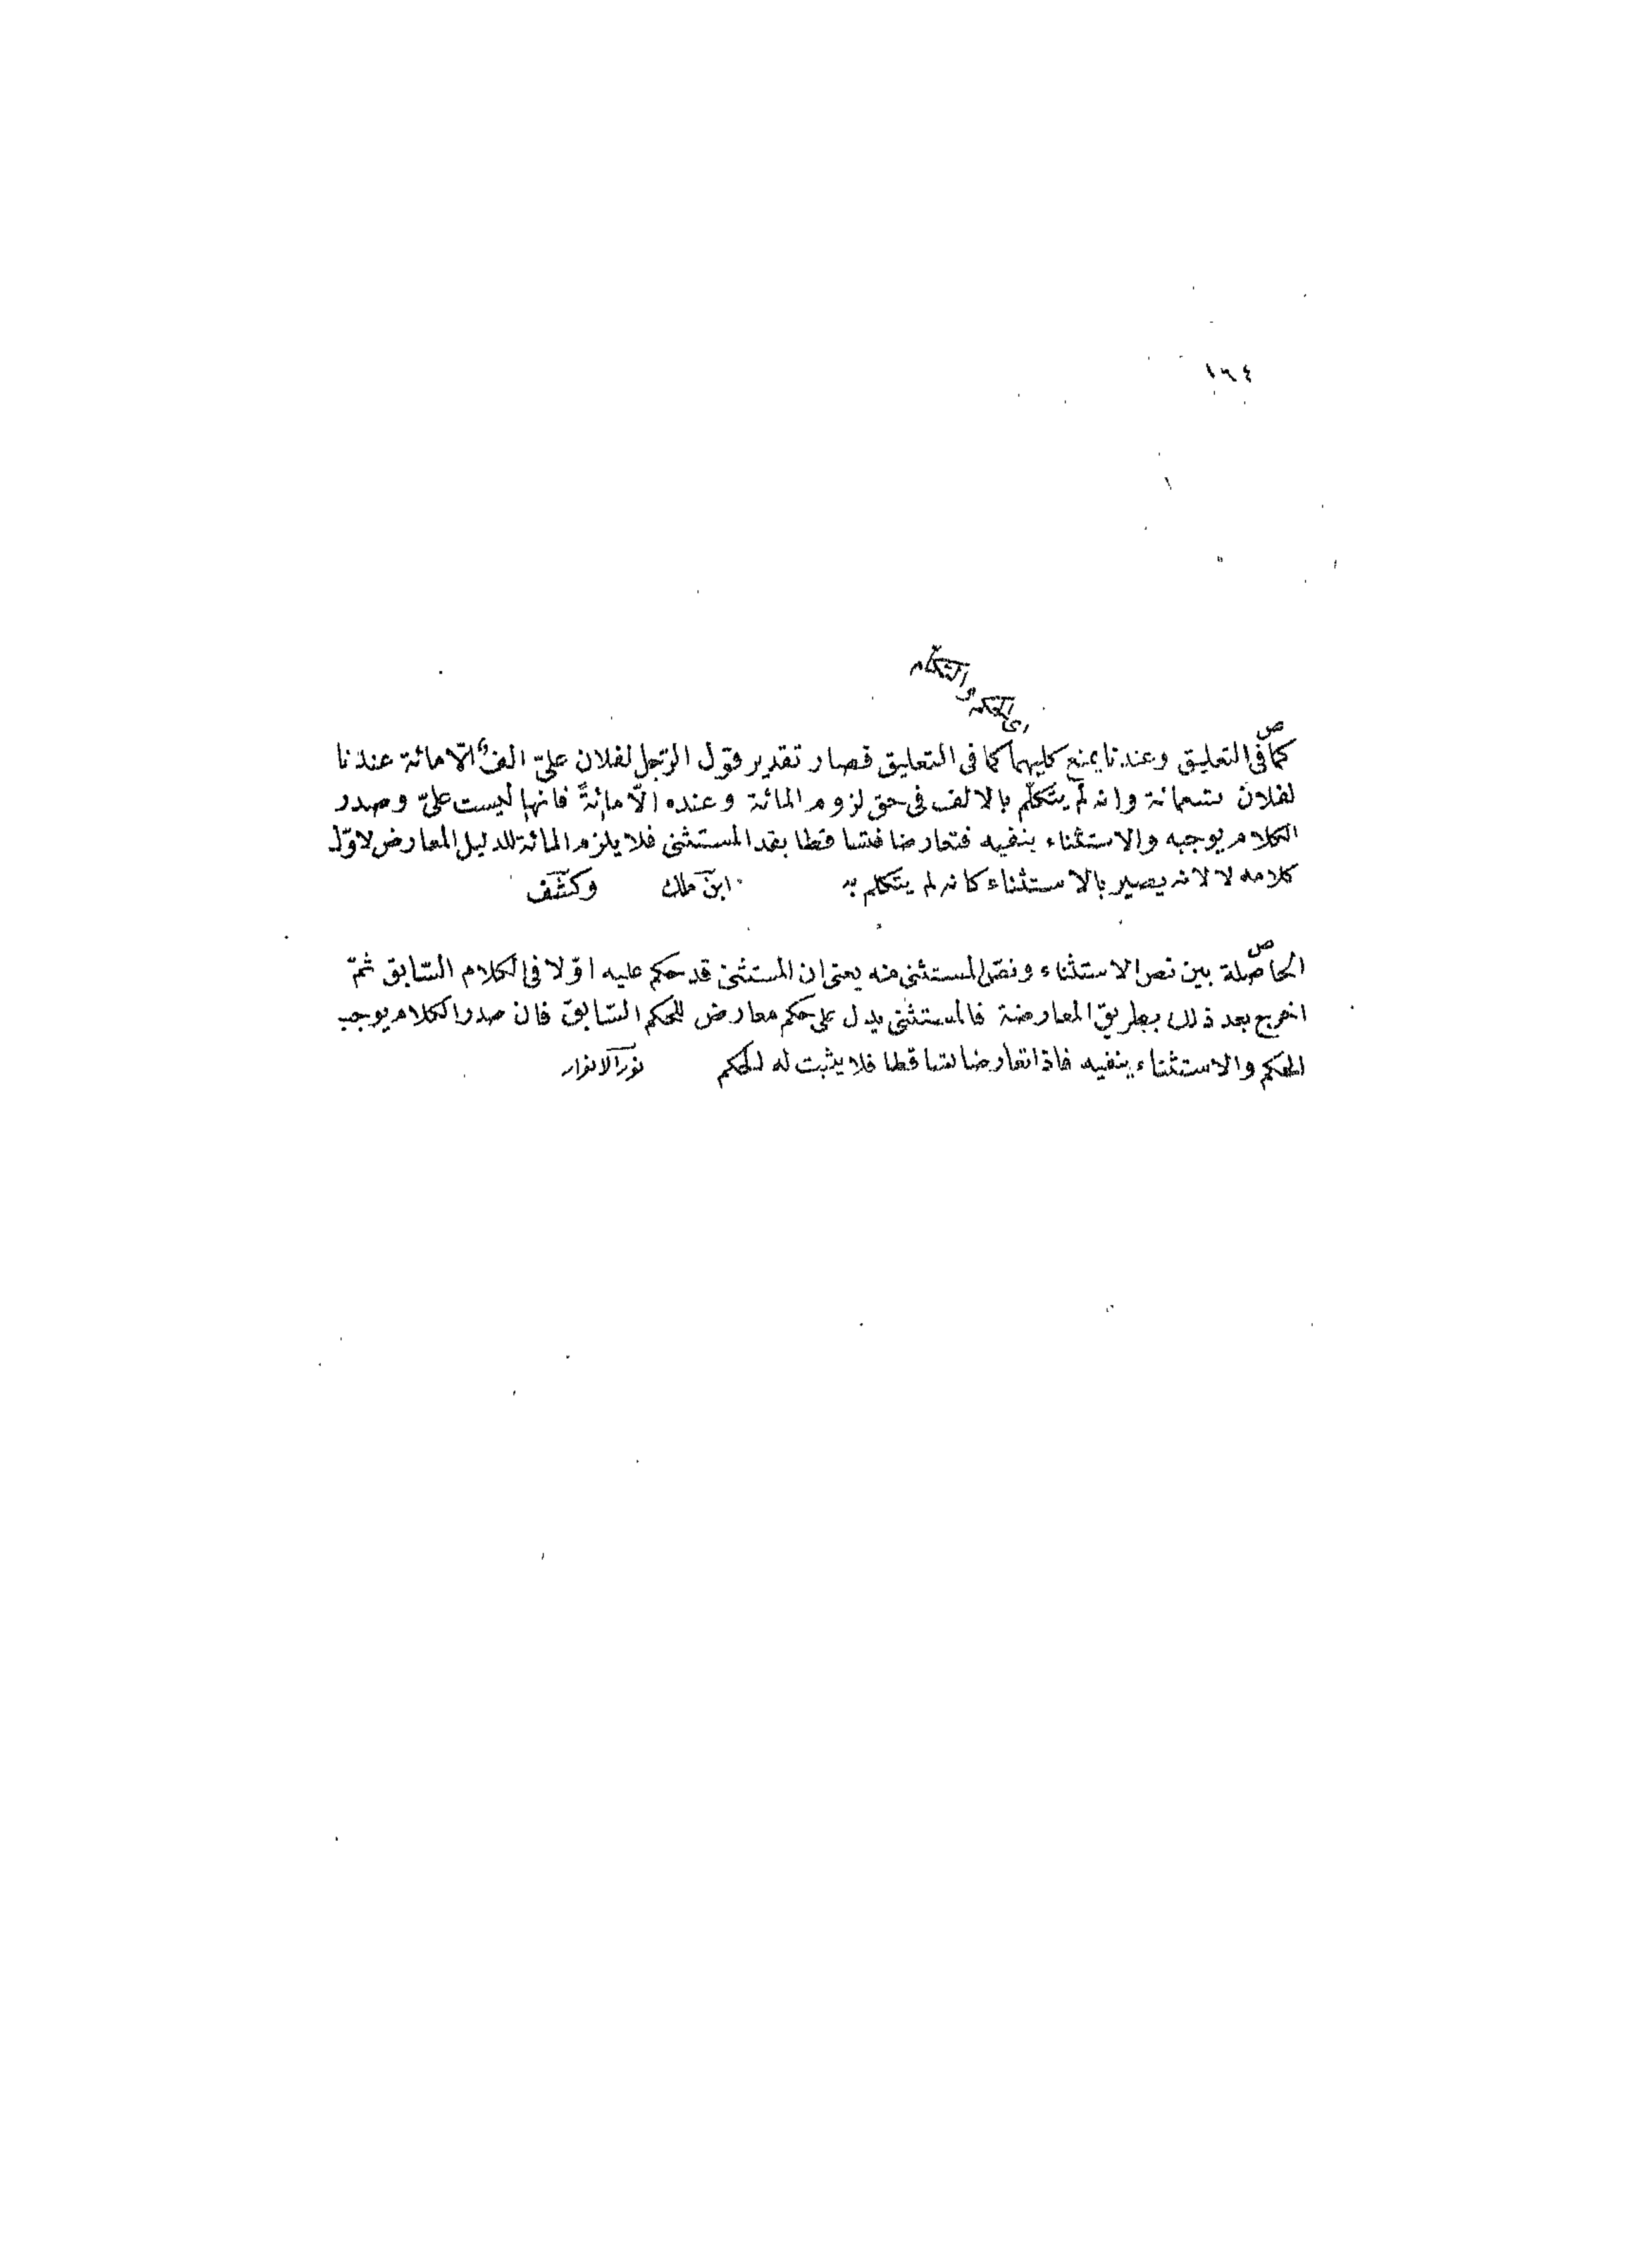 ١٦٤
اى الحكم و التكلّم
ص
كما فى التعليق وعندنا يمنع كليهما كما فى التعليق فصار تقدير قول الرّجل لفلان علىّ الفٌ الّا مائة عندنا
لفلان تسعمائة وانه لم يتكلّم بالالف فى حق لزوم المائة وعنده الّا مائةً فانها ليست علىّ وصدر
الكلام يوجبه والاستثناء ينفيه فتعارضا فتساقطا بقد المستثنى فلا يلزم المائة للدليل المعارض لاوّل
كلامه لا لانه يصير بالاستثناء كانه لم يتكلم به ابن ملك وكشف
ص
الحاصلة بين نص الاستثناء ونص المستثنى منه يعنى ان المستثنى قد حكم عليه اوّلا فى الكلام السّابق ثمّ
اخرج بعد ذلك بطريق المعارضة فالمستثنى يدل على حكم معارض للحكم السّابق فان صدر الكلام يوجب
الحكم والاستثناء ينفيه فاذا تعارضا تساقطا فلا يثبت له الحكم نور الانوار